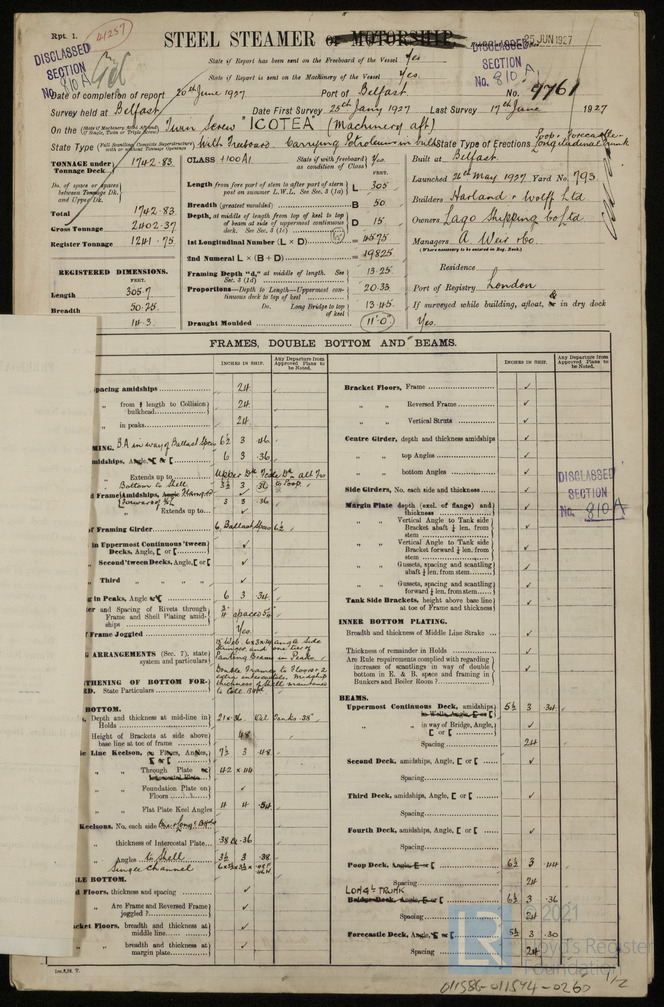 Rpt. 1.
41257
STEEL STEAMER or MOTORSHIP
25 JUN 1927
DISCLASSED
SECTION
No. 810A
DISCLASSED
SECTION
No. 810A
State if Report has been sent on the Freeboard of the Vessel Yes
State if Report is sent on the Machinery of the Vessel Yes.
Date of completion of report 20th June 1927 Port of Belfast No. 9761
Survey held at Belfast Date First Survey 25th Jany 1927 Last Survey 17th June 1927
On the Twin Screw "ICOTEA" (Machinery aft)
State Type With Freeboard. Carrying Petroleum in bulk State Type of Erections Poop & Forecastle Longitudinal Trunk
TONNAGE under Tonnage Deck 1742.83
Do. of space or spaces between Tonnage Dk. and Upper Dk.
Total 1742.83
Gross Tonnage 2402.37
Register Tonnage 1241.75
REGISTERED DIMENSIONS.
FEET.
Length 305.7
Breadth 50.25
14.3
CLASS +100A1 State if with freeboard as condition of Class Yes
FEET.
Length from fore part of stem to after part of stern post on summer L.W.L. See Sec. 3 (1a) L 305
Breadth (greatest moulded) B 50
Depth, at middle of length from top of keel to top of beam at side of uppermost continuous deck. See Sec. 3 (1c) D 15
1st Longitudinal Number (L × D) = 4575
2nd Numeral L × (B + D) = 19825
Framing Depth "d," at middle of length. See Sec. 3 (1d) 13.25
Proportions—Depth to Length—Uppermost continuous deck to top of keel 20.33
Do. Long Bridge to top of keel 13.45
Draught Moulded 11'.0"
Built at Belfast
Launched 26th May 1927 Yard No. 793
Builders Harland & Wolff Ltd
Owners Lago Shipping Co Ltd
Managers A. Weir & Co.
(Where necessary to be entered in Reg. Book.)
Residence
Port of Registry London
If surveyed while building, afloat, & in dry dock
Yes.
FRAMES, DOUBLE BOTTOM AND BEAMS.
INCHES IN SHIP.
Any Departure from Approved Plans to be Noted.
INCHES IN SHIP.
Any Departure from Approved Plans to be Noted.
pacing amidships 24
" from length to Collision bulkhead 24
" in peaks 24
MING, B.A in way of Ballast Spce 6½ 3 .46
midships, Angle, [ or [ 6 3 .36
Extends up to
Bottom to Shell 3½ 3 .36
d Frame Amidships, Angle 3 3 .36
Extends up to
of Framing Girder
in Uppermost Continuous 'tween Decks, Angle, [ or [ ✓
Second 'tween Decks, Angle, [ or [ ✓
Third " " " " ✓
g in Peaks, Angle 6 3 .34
er and Spacing of Rivets through Frame and Shell Plating amidships
f Frame Joggled Yes
G ARRANGEMENTS (Sec. 7), state system and particulars
THENING OF BOTTOM FOR-
RD. State Particulars
BOTTOM.
, Depth and thickness at mid-line in Holds 21 × .36
Height of Brackets at side above base line at toe of frame 48
e Line Keelson, or Floors, Angles, [ or [ 7½ 3 .48
" " Through Plate 42 × .44
" " Foundation Plate on Floors ✓
" " Flat Plate Keel Angles 4 4 .54
Keelsons, No. each side
" thickness of Intercostal Plate 38 & .36
" Angles to Shell 3½ 3 .38
Single Channel
LE BOTTOM.
d Floors, thickness and spacing
" Are Frame and Reversed Frame joggled? ✓
cket Floors, breadth and thickness at middle line ✓
" breadth and thickness at margin plate ✓
Bracket Floors, Frame ✓
" " Reversed Frame ✓
" " Vertical Struts ✓
Centre Girder, depth and thickness amidships ✓
" " top Angles ✓
" " bottom Angles ✓
Side Girders, No. each side and thickness ✓
Margin Plate depth (excl. of flange) and thickness ✓
" " Vertical Angle to Tank side Bracket abaft ¼ len. from stem ✓
" " Vertical Angle to Tank side Bracket forward ¼ len. from stem ✓
" " Gussets, spacing and scantling abaft ¼ len. from stem ✓
" " Gussets, spacing and scantling forward ¼ len. from stem ✓
Tank Side Brackets, height above base line at toe of Frame and thickness ✓
DISCLASSED
SECTION
No. 810A
INNER BOTTOM PLATING.
Breadth and thickness of Middle Line Strake ✓
Thickness of remainder in Holds ✓
Are Rule requirements complied with regarding increases of scantlings in way of double bottom in E. & B. space and framing in Bunkers and Boiler Room? ✓
BEAMS.
Uppermost Continuous Deck, amidships 5½ 3 .34
" " in way of Bridge, Angle, [ or [ ✓
Spacing 24
Second Deck, amidships, Angle, [ or [ ✓
Spacing
Third Deck, amidships, Angle, [ or [ ✓
Spacing
Fourth Deck, amidships, Angle, [ or [ ✓
Spacing
Poop Deck, Angle, [ or [ 6½ 3 .44
Spacing 24
LONGL TRUNK
Bridge Deck, Angle, [ or [ 6½ 3 .36
Spacing 24
Forecastle Deck, Angle, [ or [ 5½ 3 .30
Spacing 24
© 2021
Lloyd's Register
Foundation
1/2
011586-011594-0260